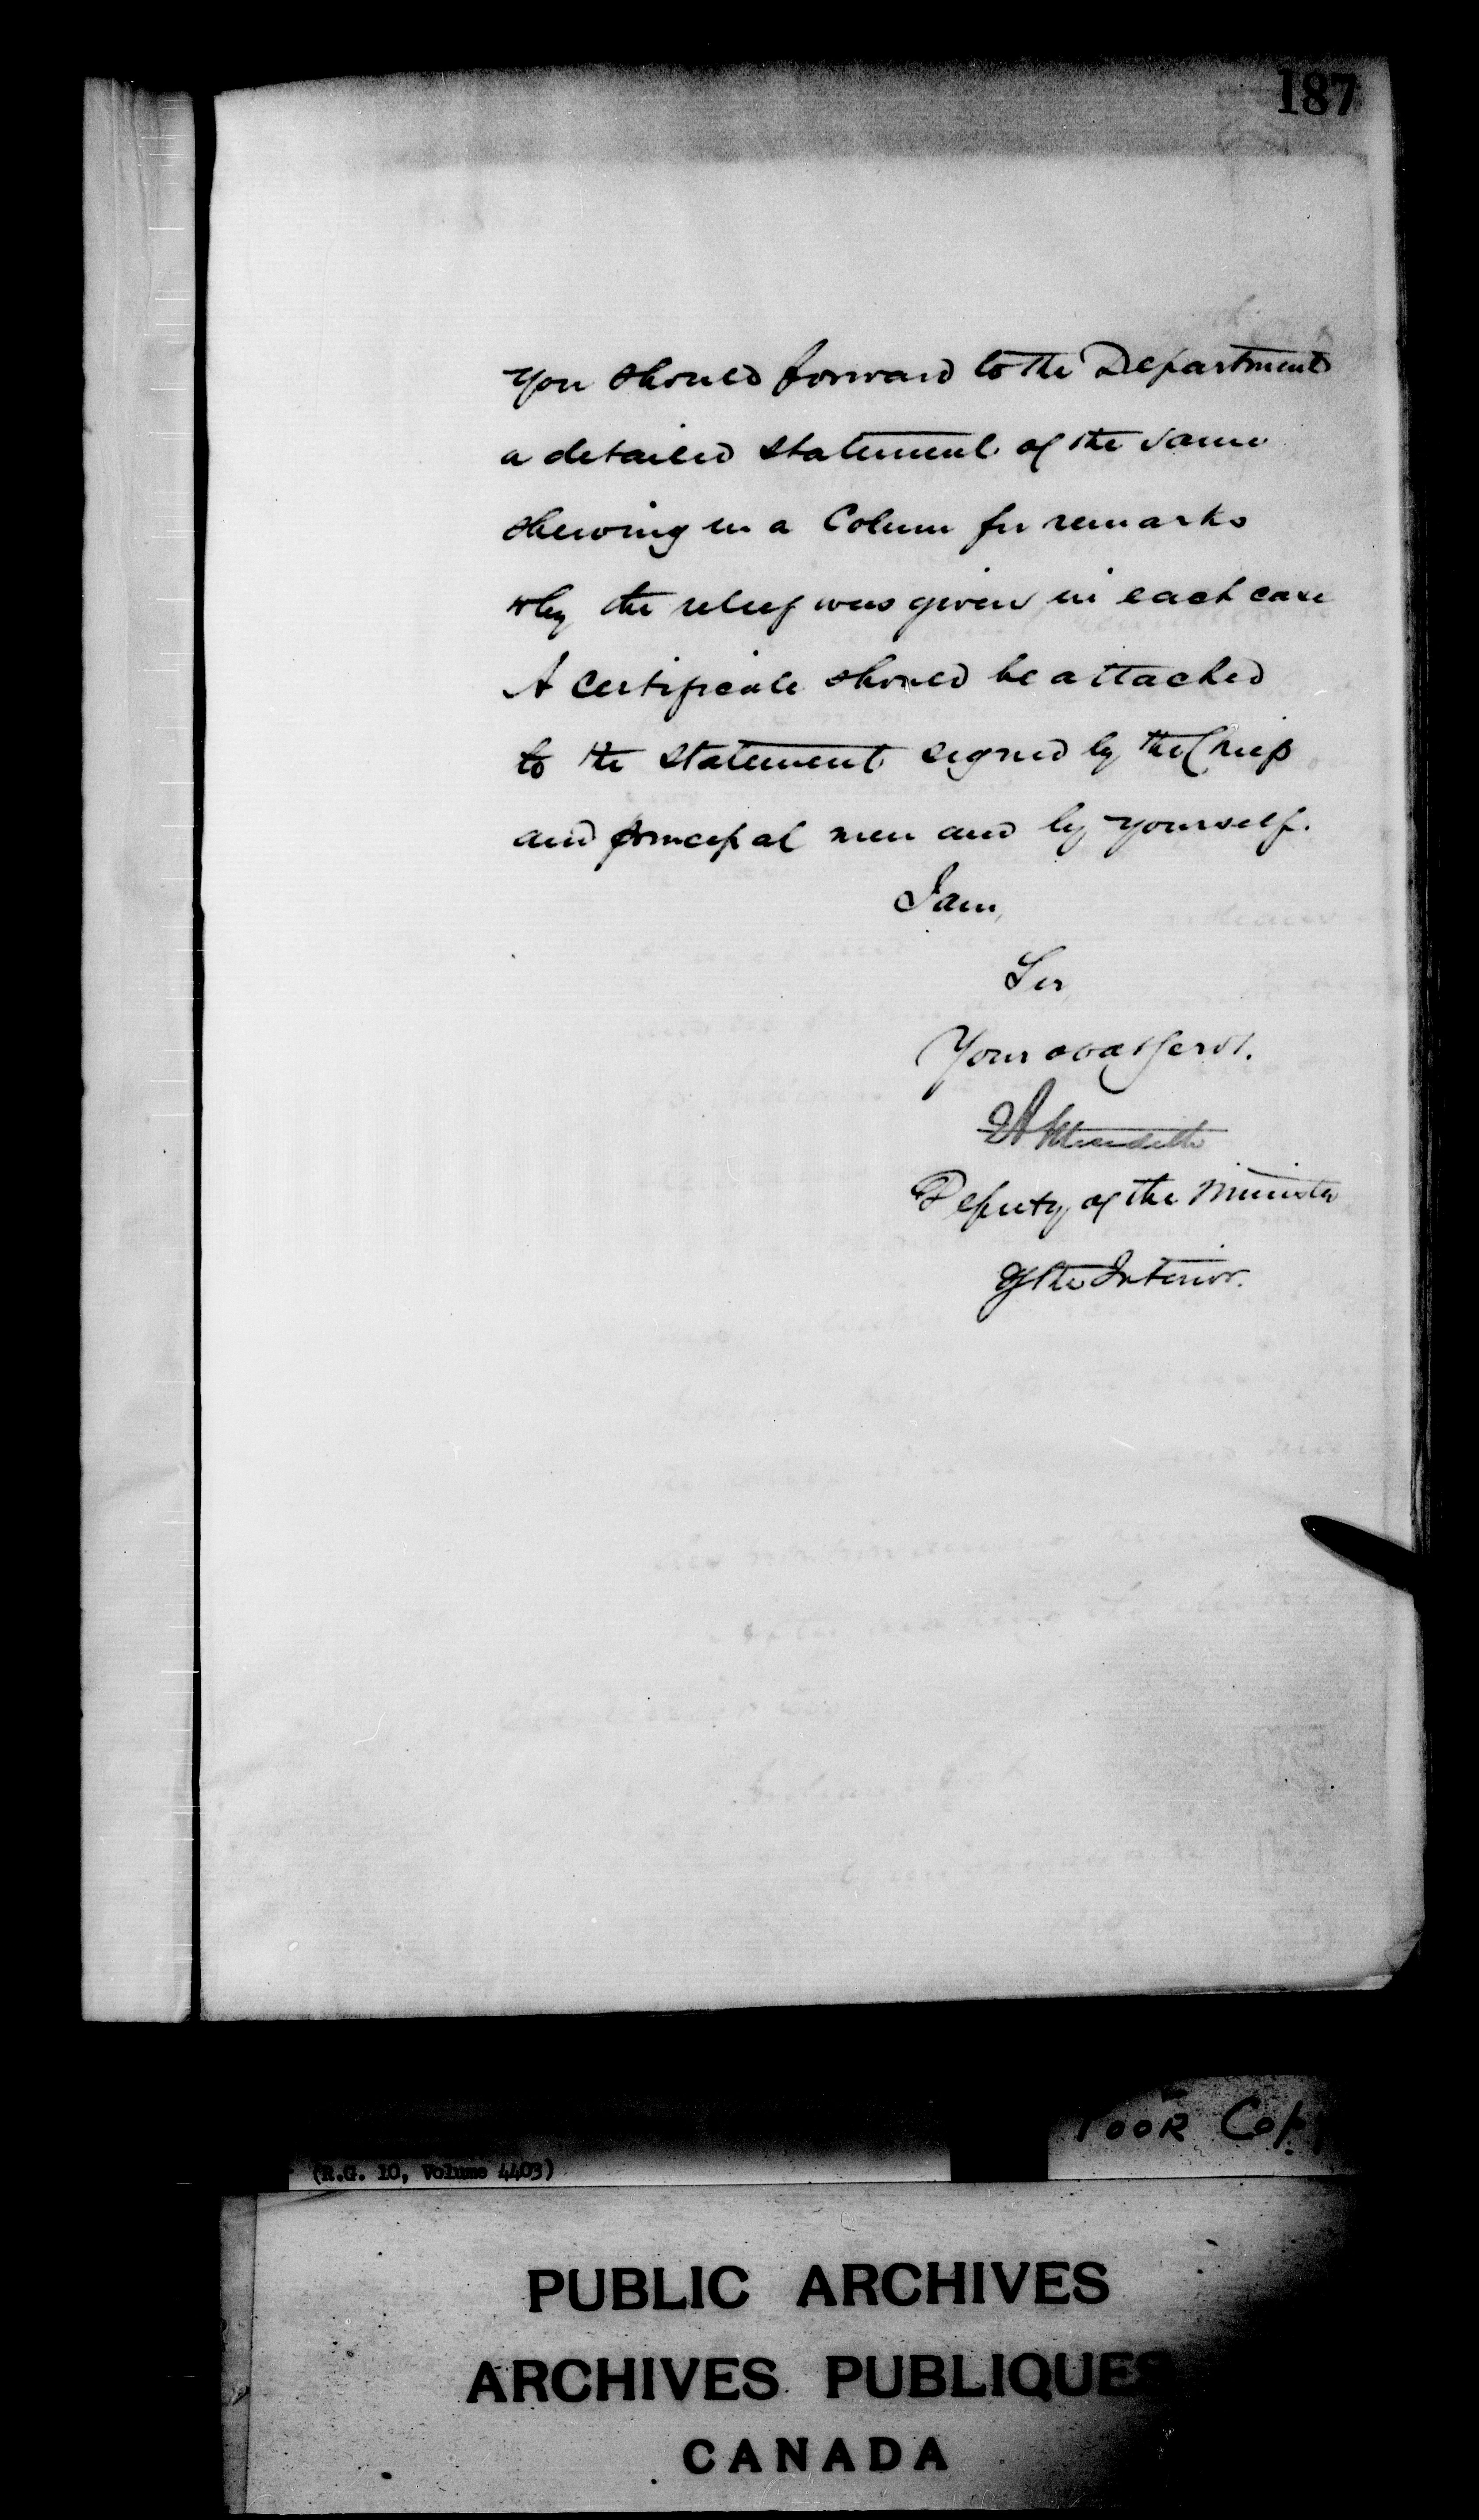 187
you should forward to the Department
a detailed statement of the same
shewing in a Column for remarks
why the relief was given in each case
A Certificate should be attached
to the statement signed by the Chiefs
and principal men and by yourself.
I am,
Sir,
Your obdt Servt.
E A Meredith
Deputy of the Minister
of the Interior.
POOR COPY
(R.G. 10, Volume 4403)
PUBLIC ARCHIVES
ARCHIVES PUBLIQUES
CANADA